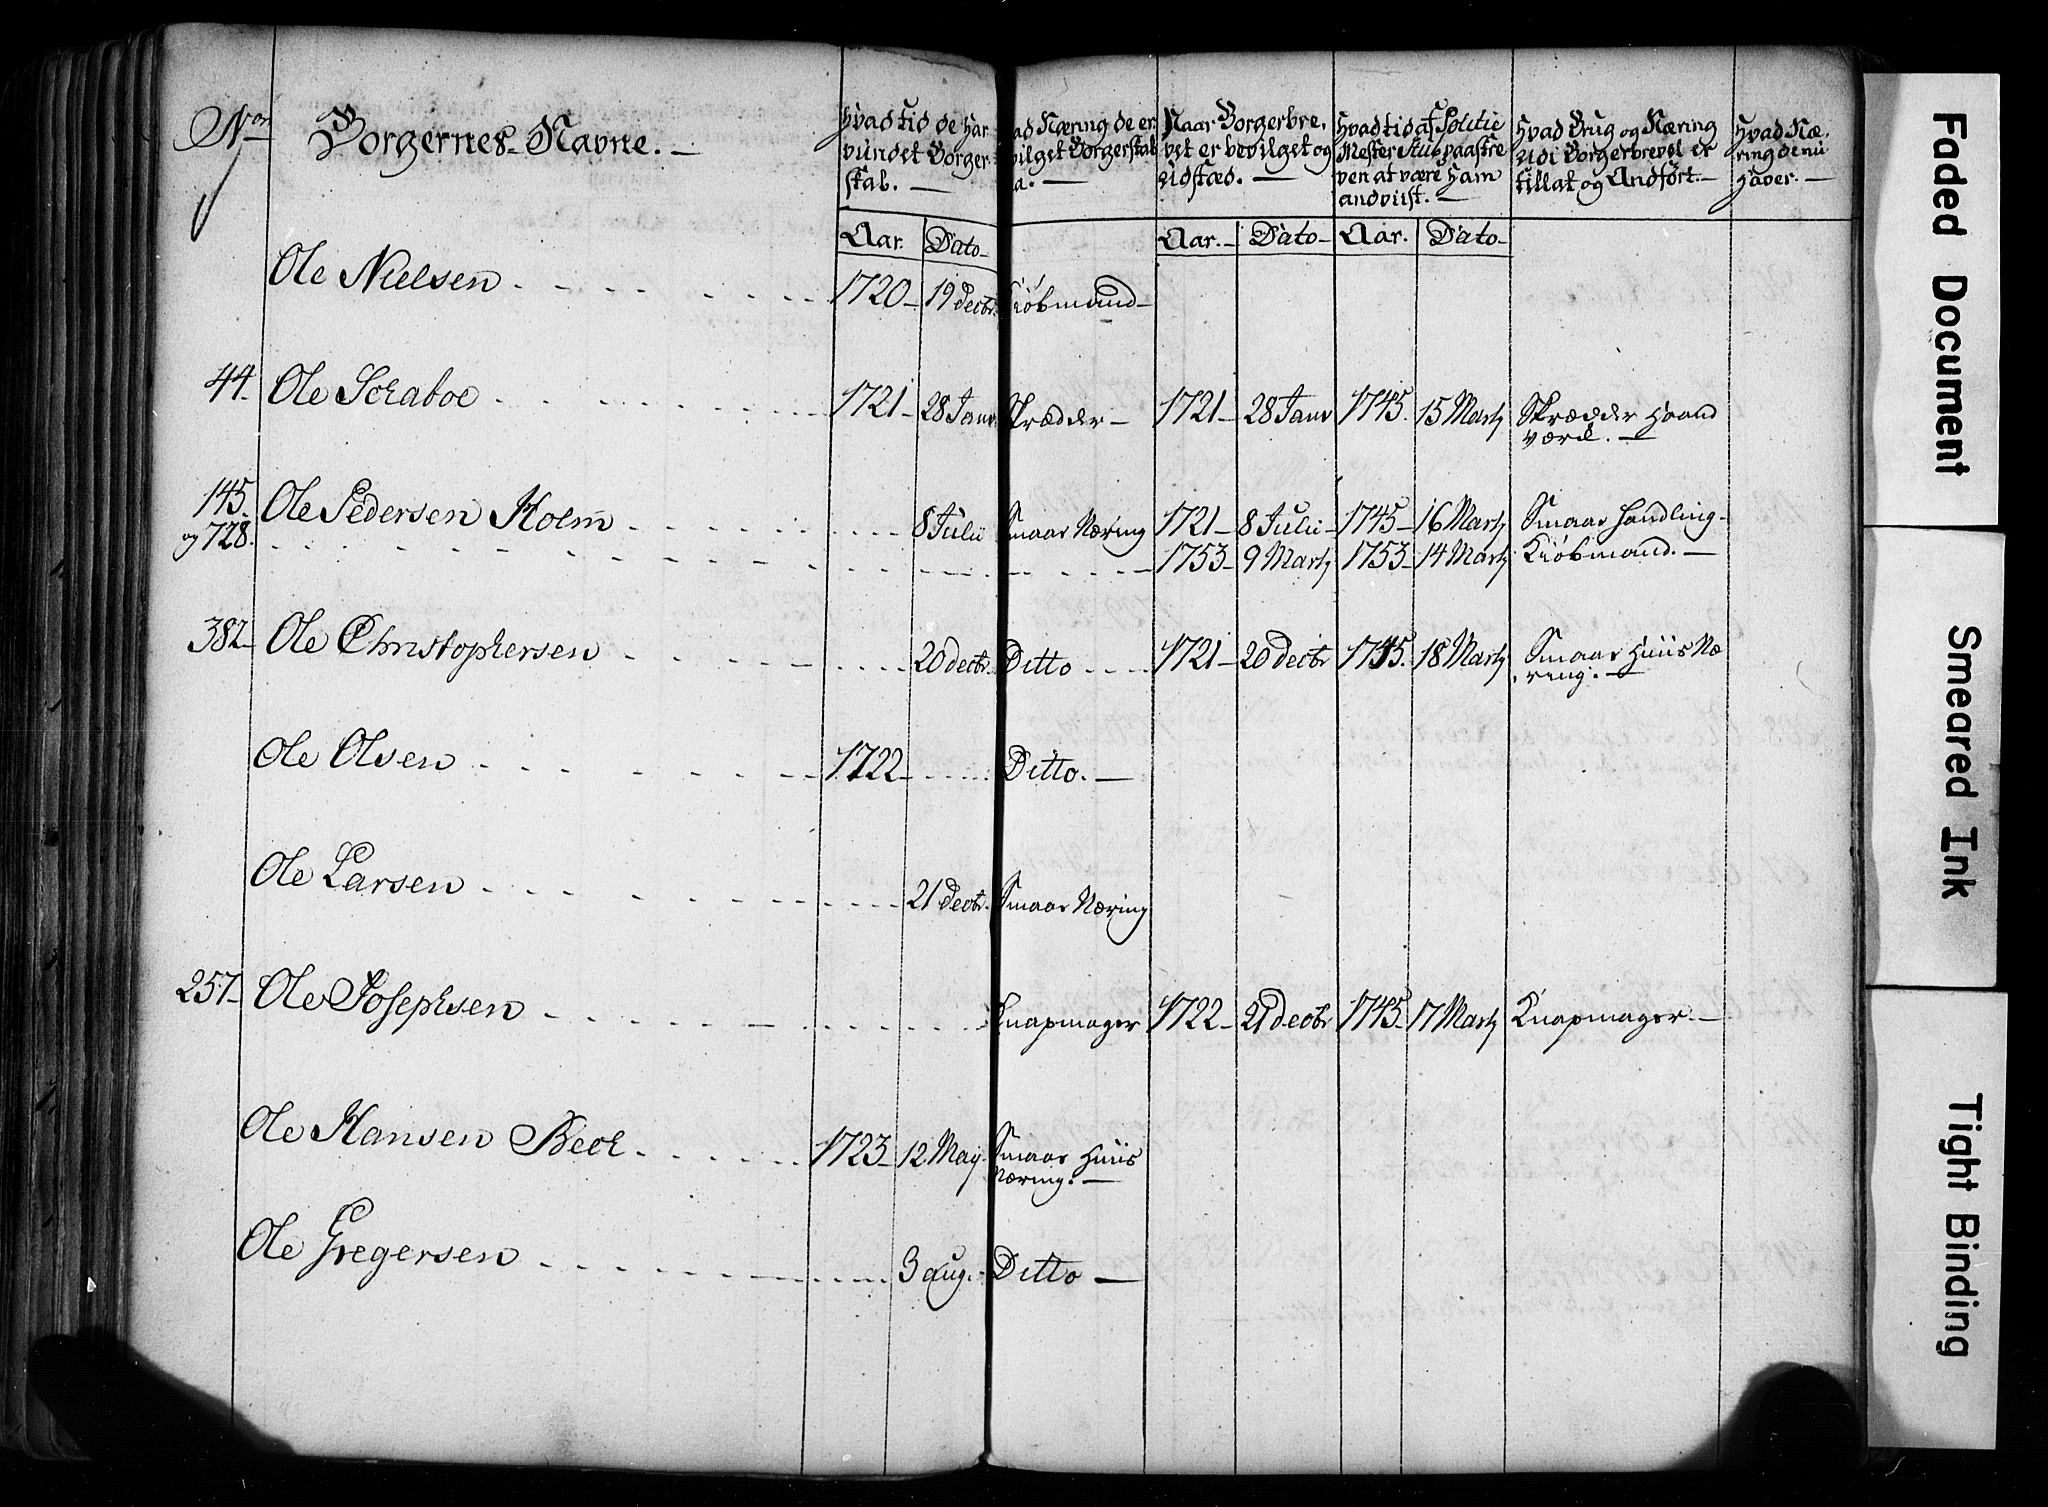 Nrn
Borgernes Navne. —
Hvad tid de har
vundet Borger
skab. —
Næring de er
Borgerskab
Naar Borgerbre,
vet er bevilget og
udstæd. —
Hvad tid af Politie
Mester Aus paaskre
ven at være ham
andviist. —
Hvad Brug og Næring
udi Borgerbrevet er
tillat og Andført. —
Hvad Næ,
ring de nu
haver. —
Aar. Dato Aar. Dato Aar. Dato
Ole Nielsen 1720 19 Decbr. Kiøbmand
44. Ole Scraboe 1721 28 Janv. Skrædder 1721 28 Janv 1745. 15 Marty Skrædder Haand
værck. —
145. Ole Pedersen Holm 8 Julii Smaae Næring 1721 8 Julii 1745 16 Marty Smaae Handling
og 728. 1753 9 Marty 1753 14 Marty Kiøbmand. —
382 Ole Christophersen 20 Decbr. Ditto 1721 20 Decbr 1745. 18 Marty Smaae Huus Næ
ring. —
Ole Olsen 1722 Ditto. —
Ole Larsen 21 Decbr. Smaae Næring
257 Ole Josephsen Knapmager 1722 21 Decbr 1745 17 Marty Knapmager. —
Ole Hansen Beck 1723 12 May. Smaae Huus
Næring. —
Ole Gregersen 3 aug. Ditto —
Faded Document
Smeared Ink
Tight Binding